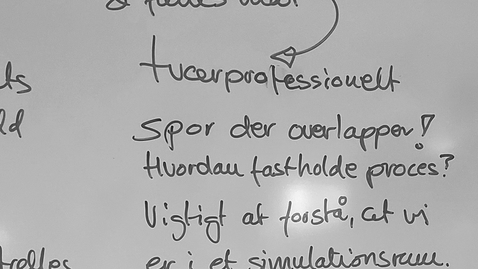 tværprofessionelt
ts
Spor der overlapper!
ld
Hvordan fastholde proces?
Vigtigt at forstå, at vi
er i et simulationsrum.